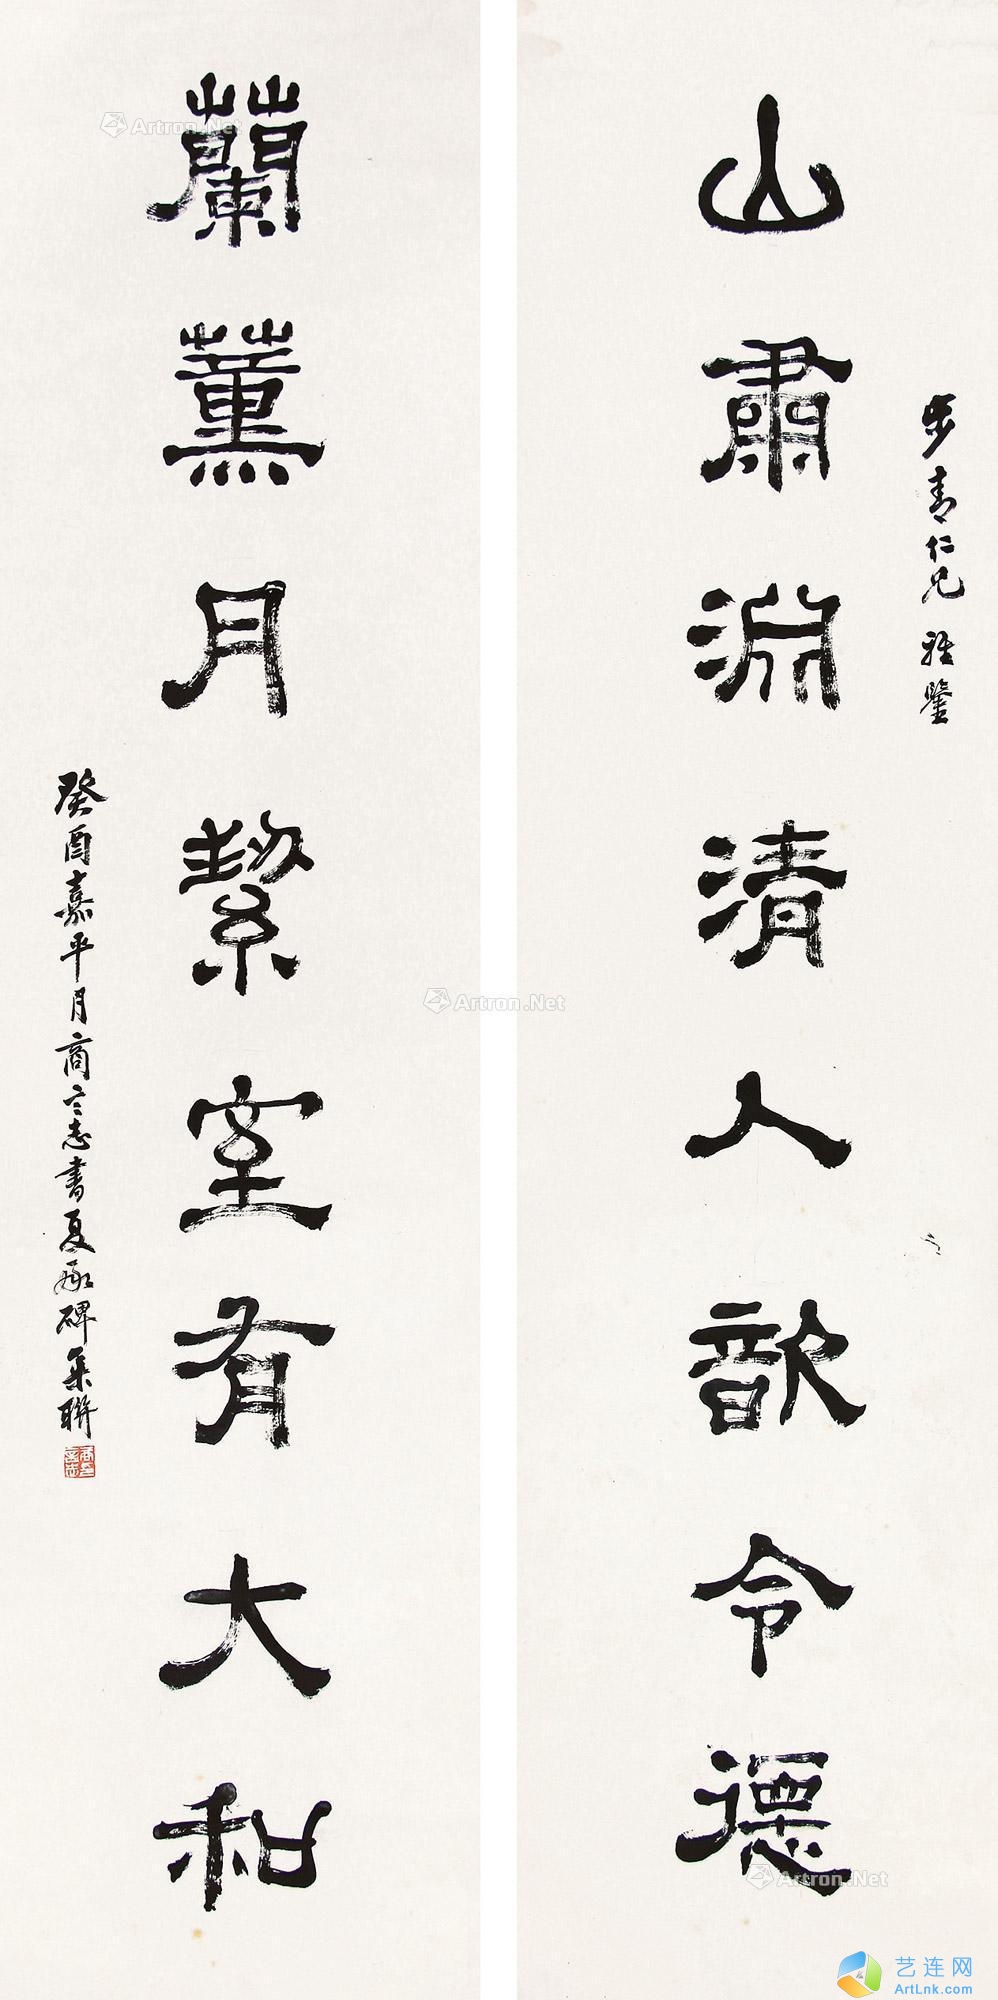 步青仁兄雅鉴
山肅淵清人歆令德
蘭薰月絜室有大和
癸酉嘉平月商言志書夏承碑集聯
商言志
Artron.Net
Artron.Net
Artron.Net
艺连网
ArtLnk.com